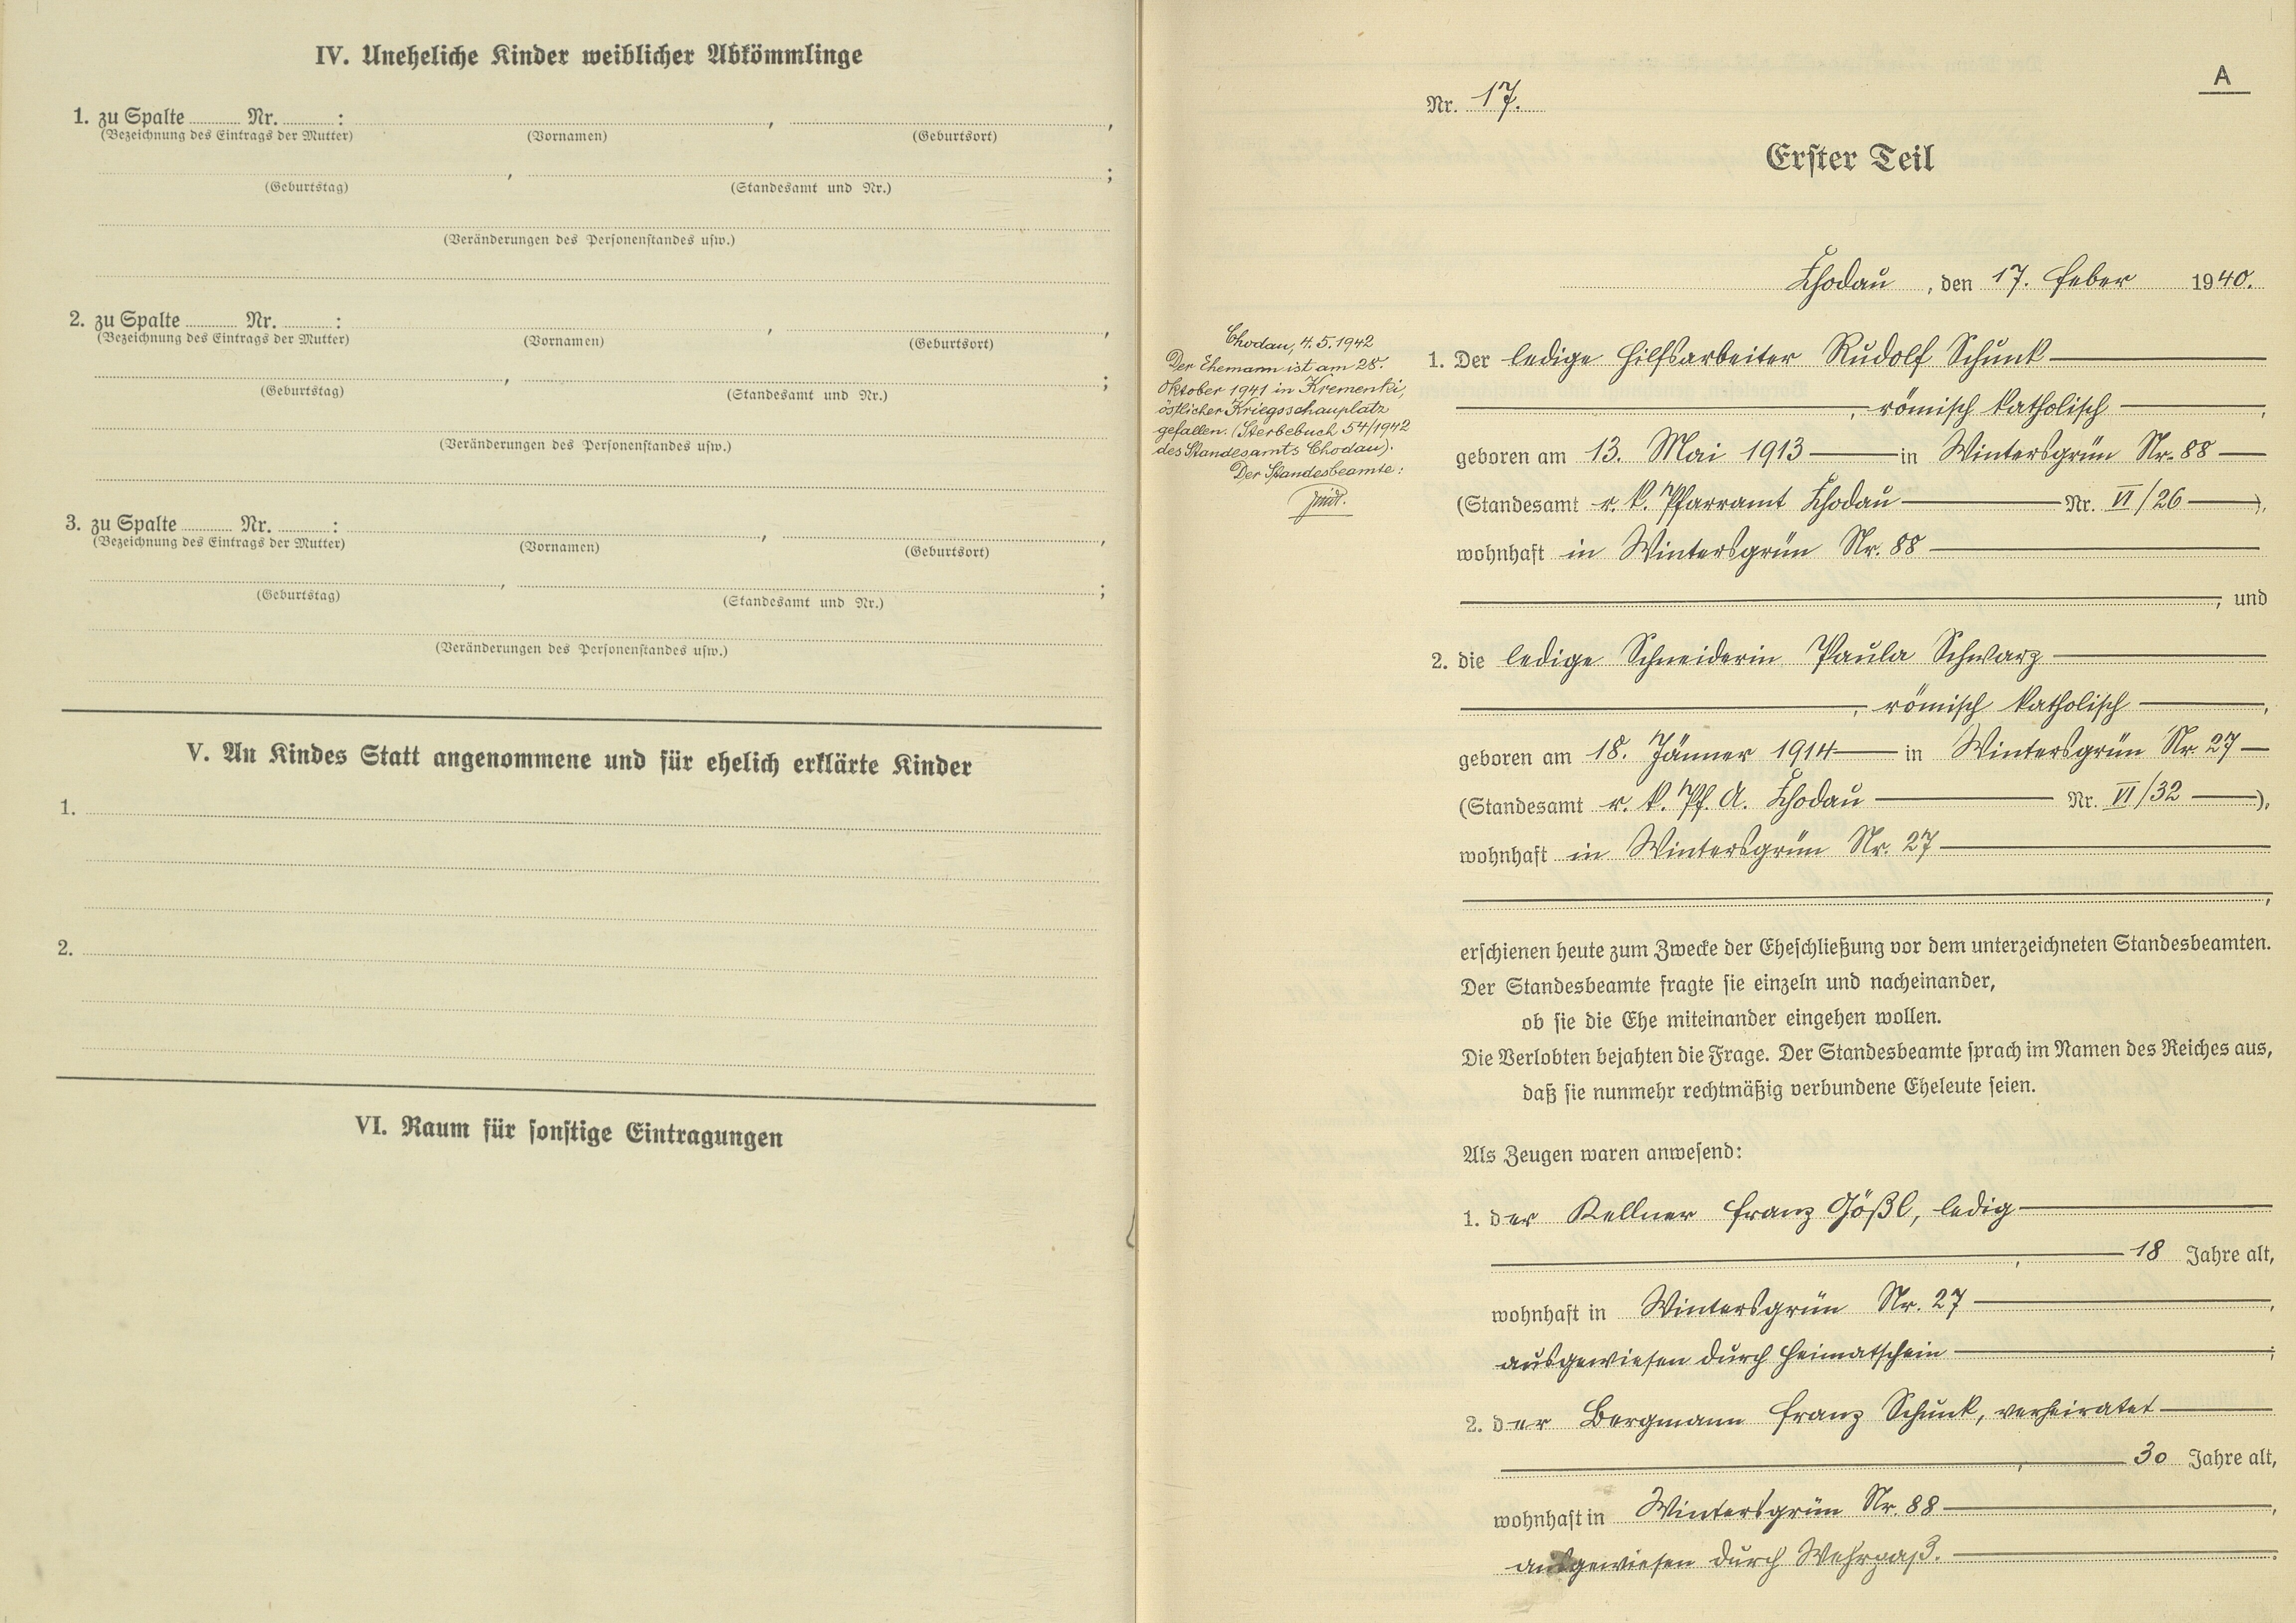 IV. Uneheliche Kinder weiblicher Abkömmlinge
1. zu Spalte Nr. : , ,
(Bezeichnung des Eintrags der Mutter) (Vornamen) (Geburtsort)
, ;
(Geburtstag) (Standesamt und Nr.)
(Veränderungen des Personenstandes usw.)
2. zu Spalte Nr. : , ,
(Bezeichnung des Eintrags der Mutter) (Vornamen) (Geburtsort)
, ;
(Geburtstag) (Standesamt und Nr.)
(Veränderungen des Personenstandes usw.)
3. zu Spalte Nr. : , ,
(Bezeichnung des Eintrags der Mutter) (Vornamen) (Geburtsort)
, ;
(Geburtstag) (Standesamt und Nr.)
(Veränderungen des Personenstandes usw.)
V. An Kindes Statt angenommene und für ehelich erklärte Kinder
1.
2.
VI. Raum für sonstige Eintragungen
A
Nr. 17.
Erster Teil
Chodau, den 17. Feber 1940.
Chodau, 4.5.1942
Der Ehemann ist am 28.
Oktober 1941 in Kremenki,
östlicher Kriegsschauplatz
gefallen. (Sterbebuch 54/1942
des Standesamts Chodau).
Der Standesbeamte:
1. Der ledige Hilfsarbeiter Rudolf Schunk
, römisch katholisch ,
geboren am 13. Mai 1913 in Wintersgrün Nr. 88
(Standesamt r. k. Pfarramt Chodau Nr. VI/26 ),
wohnhaft in Wintersgrün Nr. 88
, und
2. die ledige Schneiderin Paula Schwarz
, römisch katholisch ,
geboren am 18. Jänner 1914 in Wintersgrün Nr. 27
(Standesamt r. k. Pf. A. Chodau Nr. VI/32 ),
wohnhaft in Wintersgrün Nr. 27
,
erschienen heute zum Zwecke der Eheschließung vor dem unterzeichneten Standesbeamten.
Der Standesbeamte fragte sie einzeln und nacheinander,
ob sie die Ehe miteinander eingehen wollen.
Die Verlobten bejahten die Frage. Der Standesbeamte sprach im Namen des Reiches aus,
daß sie nunmehr rechtmäßig verbundene Eheleute seien.
Als Zeugen waren anwesend:
1. der Kellner Franz Gößl, ledig
, 18 Jahre alt,
wohnhaft in Wintersgrün Nr. 27 ,
ausgewiesen durch Heimatschein ;
2. der Bergmann Franz Schunk, verheiratet
, 30 Jahre alt,
wohnhaft in Wintersgrün Nr. 88 ,
ausgewiesen durch Wehrpaß. .